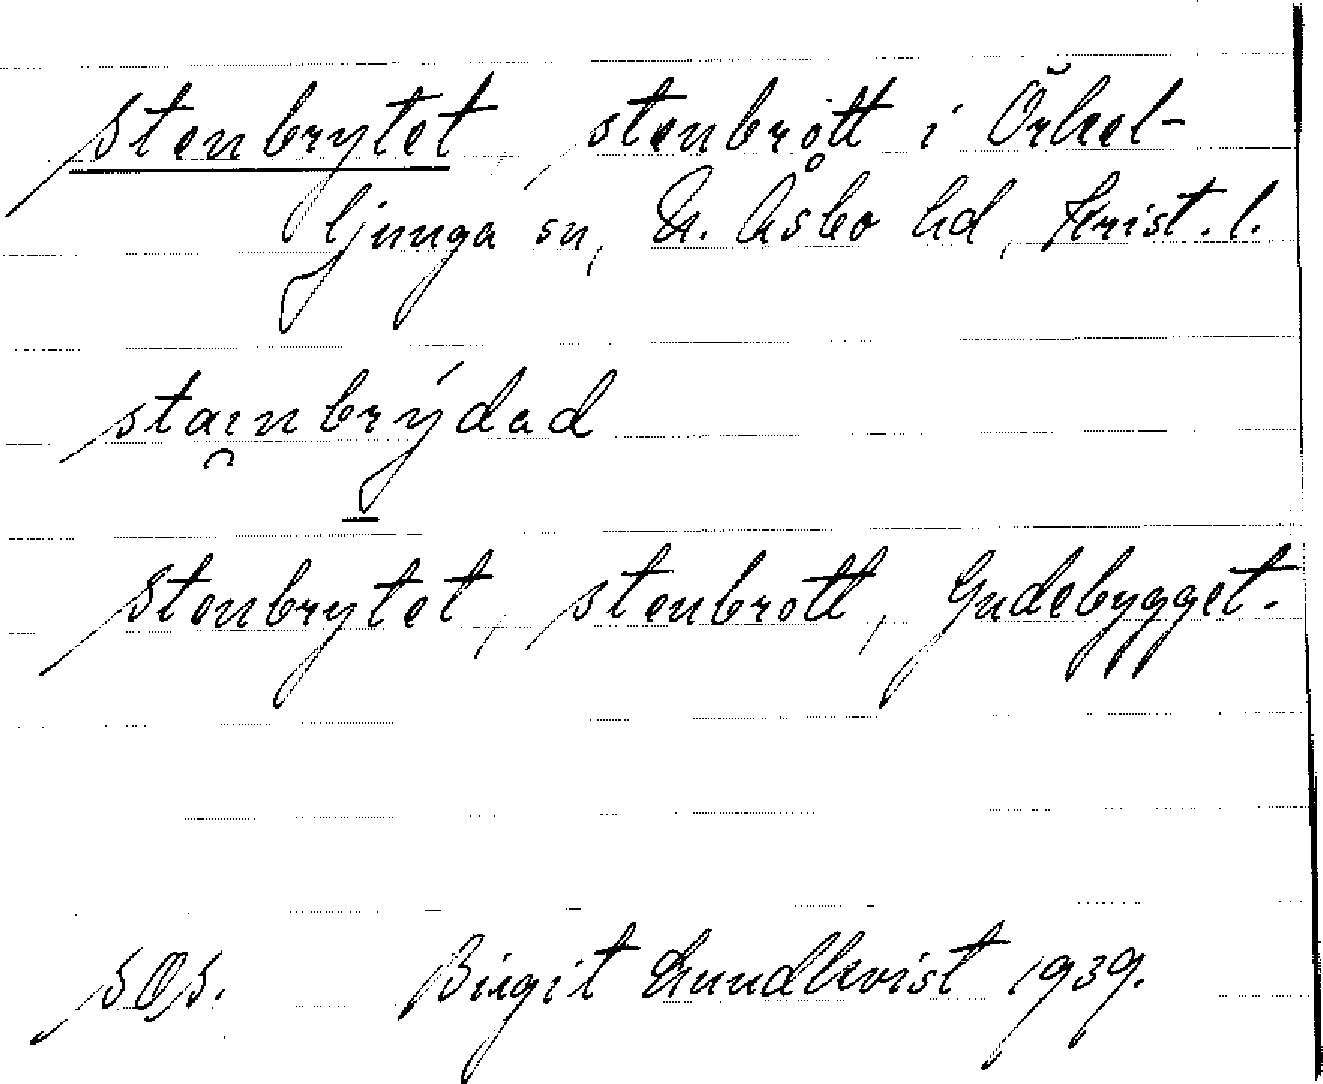 Stenbrytet, stenbrott i Örkel-
ljunga sn, N. Åsbo hd, Krist. l.
stai̯nbrýdad
Stenbrytet, stenbrott, Gudebygget.
SOS. Birgit Lundkvist 1939.